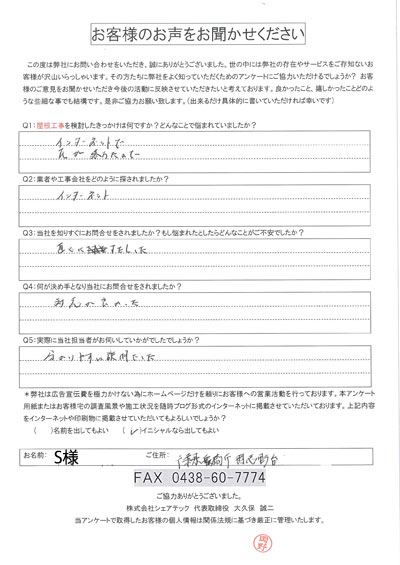 お客様のお声をお聞かせください
この度は弊社にお問い合わせをいただき、誠にありがとうございました。世の中には弊社の存在やサービスをご存知ないお
客様が沢山いらっしゃいます。その方たちに弊社をよく知っていただくためのアンケートにご協力いただけるでしょうか? お客
様のご意見をお聞かせいただき今後の活動に反映させていただきたいと考えております。良かったこと、嬉しかったことどのよ
うな些細な事でも結構です。是非ご協力お願い致します。(出来るだけ具体的に書いていただければ幸いです)
Q1:屋根工事を検討したきっかけは何ですか?どんなことで悩まれていましたか?
インターネットで
Q2:業者や工事会社をどのように探されましたか?
インターネット
Q3:当社を知りすぐにお問合せをされましたか?もし悩まれたとしたらどんなことがご不安でしたか?
Q4:何が決め手となり当社にお問合せをされましたか?
対応が良かった
Q5:実際に当社担当者がお伺いしていかがでしたでしょうか?
分かりやすい説明でした
*弊社は広告宣伝費を極力かけない為にホームページだけを頼りにお客様への営業活動を行っております。本アンケート
用紙またはお客様宅の調査風景や施工状況を随時ブログ形式のインターネットに掲載させていただいております。上記内容
をインターネットや印刷物に掲載させていただいてもよろしいでしょうか?
( )名前を出してもよい (✓)イニシャルなら出してもよい
お名前: S様 ご住所:
FAX 0438-60-7774
ご協力ありがとうございました。
株式会社シェアテック 代表取締役 大久保 誠二
当アンケートで取得したお客様の個人情報は関係法規に基づき厳正に管理いたします。